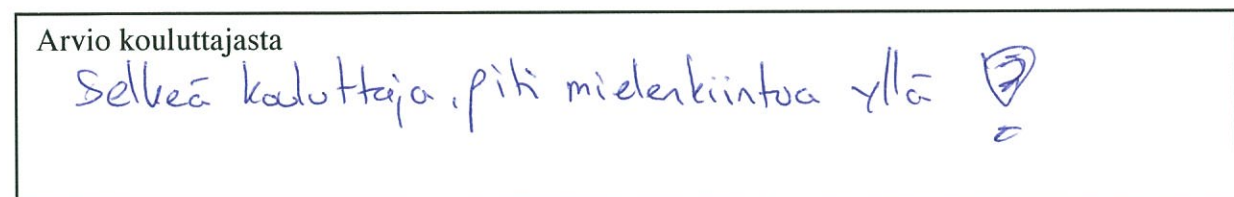 Arvio kouluttajasta
Selkeä kouluttaja, piti mielenkiintoa yllä !